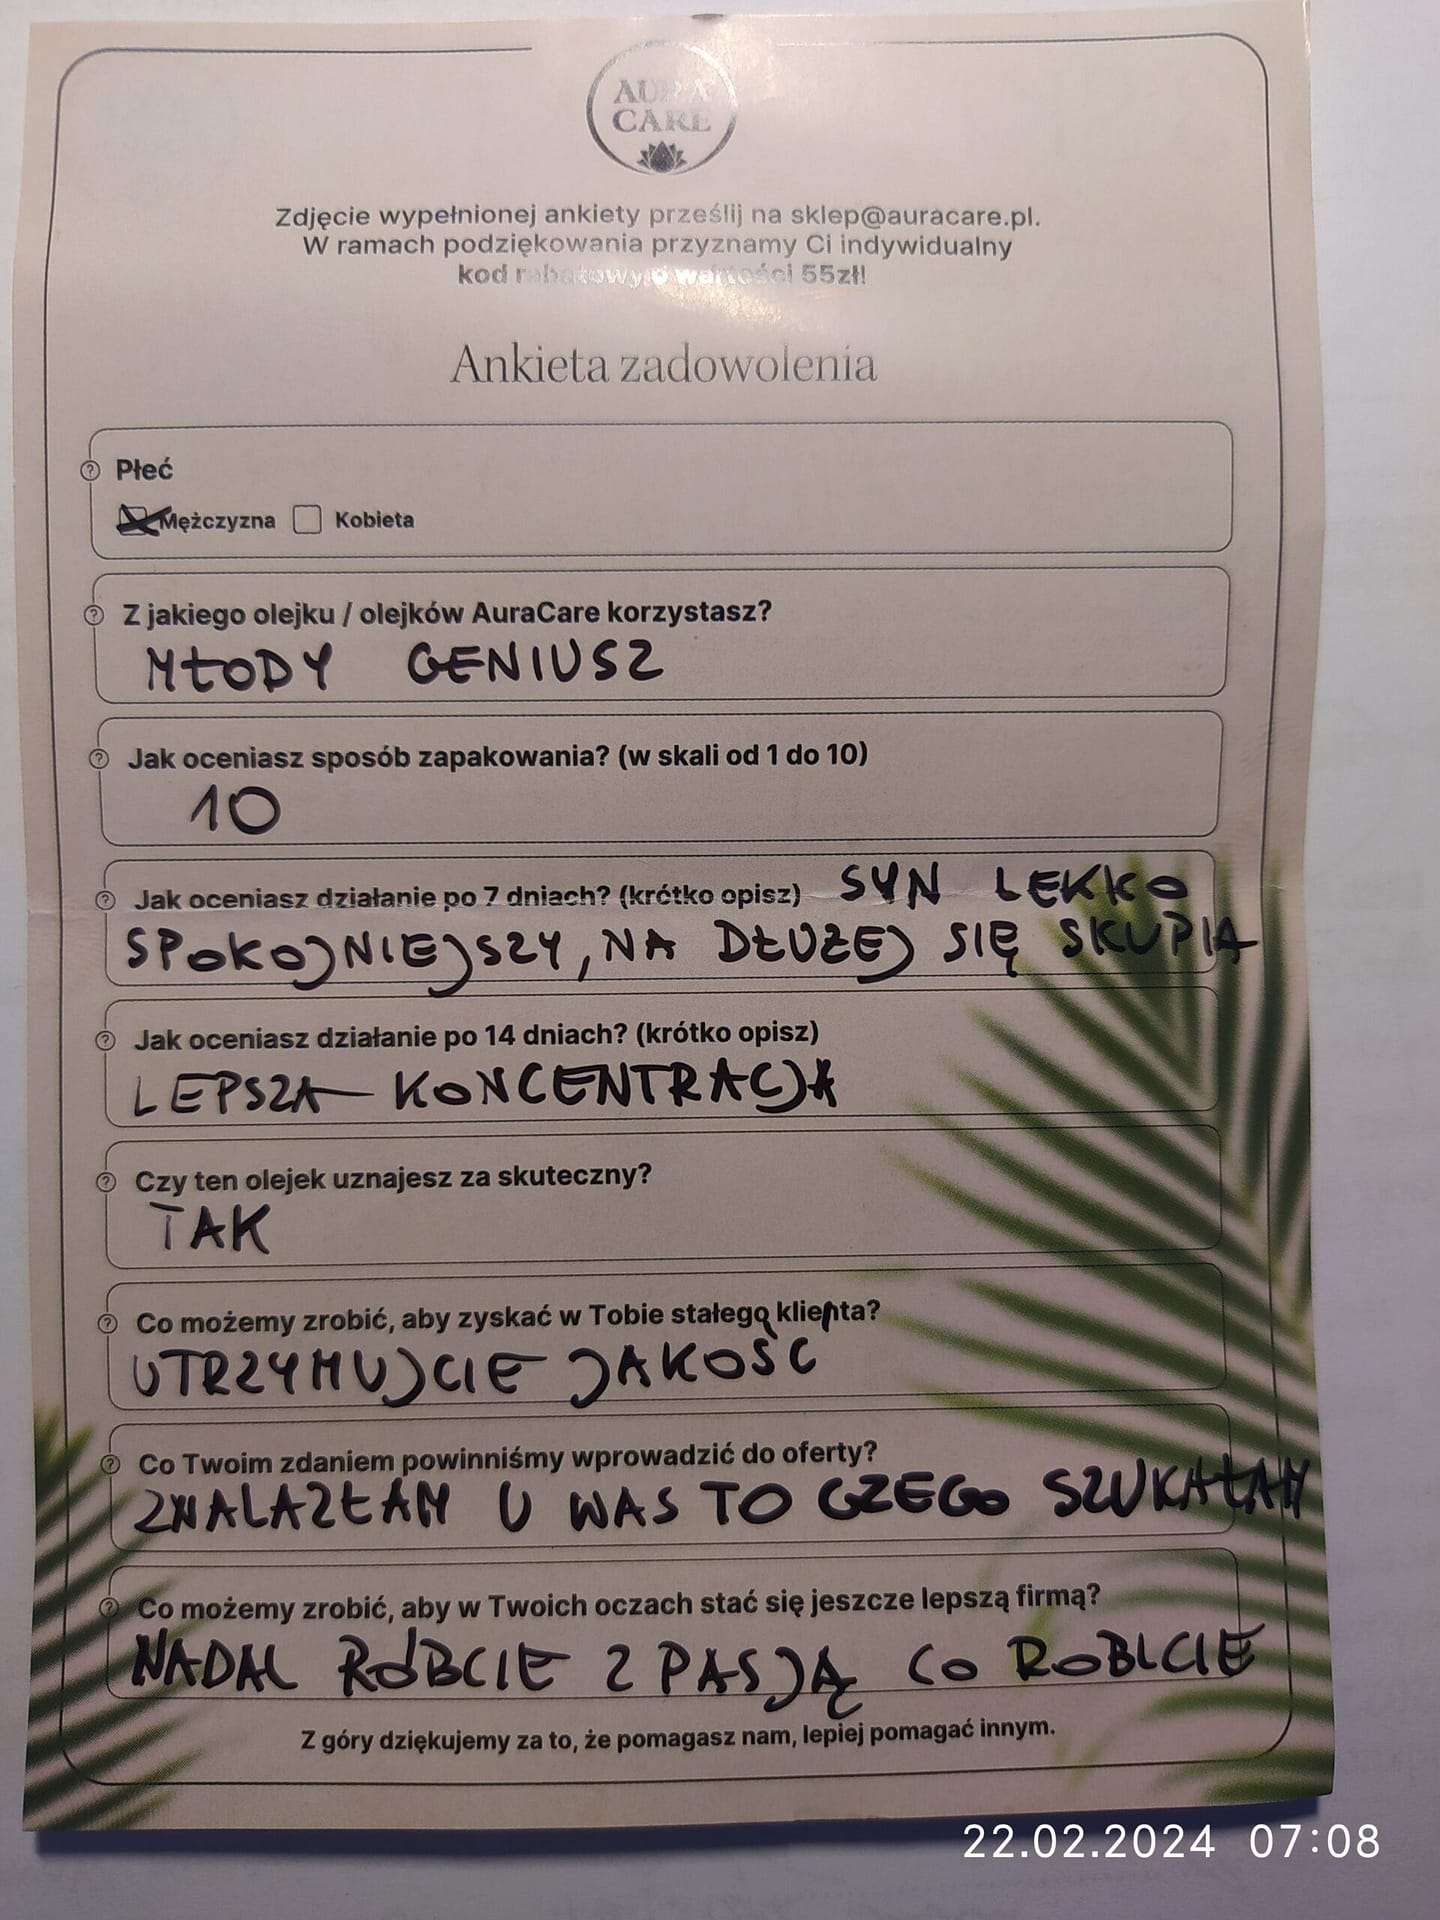 AURA
CARE
Zdjęcie wypełnionej ankiety prześlij na sklep@auracare.pl.
W ramach podziękowania przyznamy Ci indywidualny
kod rabatowy o wartości 55zł!
Ankieta zadowolenia
Płeć
Mężczyzna Kobieta
Z jakiego olejku / olejków AuraCare korzystasz?
MŁODY GENIUSZ
Jak oceniasz sposób zapakowania? (w skali od 1 do 10)
10
Jak oceniasz działanie po 7 dniach? (krótko opisz) SYN LEKKO
SPOKOJNIEJSZY, NA DŁUŻEJ SIĘ SKUPIA
Jak oceniasz działanie po 14 dniach? (krótko opisz)
LEPSZA KONCENTRACJA
Czy ten olejek uznajesz za skuteczny?
TAK
Co możemy zrobić, aby zyskać w Tobie stałego klienta?
UTRZYMUJCIE JAKOŚĆ
Co Twoim zdaniem powinniśmy wprowadzić do oferty?
ZNALAZŁAM U WAS TO CZEGO SZUKAŁAM
Co możemy zrobić, aby w Twoich oczach stać się jeszcze lepszą firmą?
NADAL RÓBCIE Z PASJĄ CO ROBICIE
Z góry dziękujemy za to, że pomagasz nam, lepiej pomagać innym.
22.02.2024 07:08